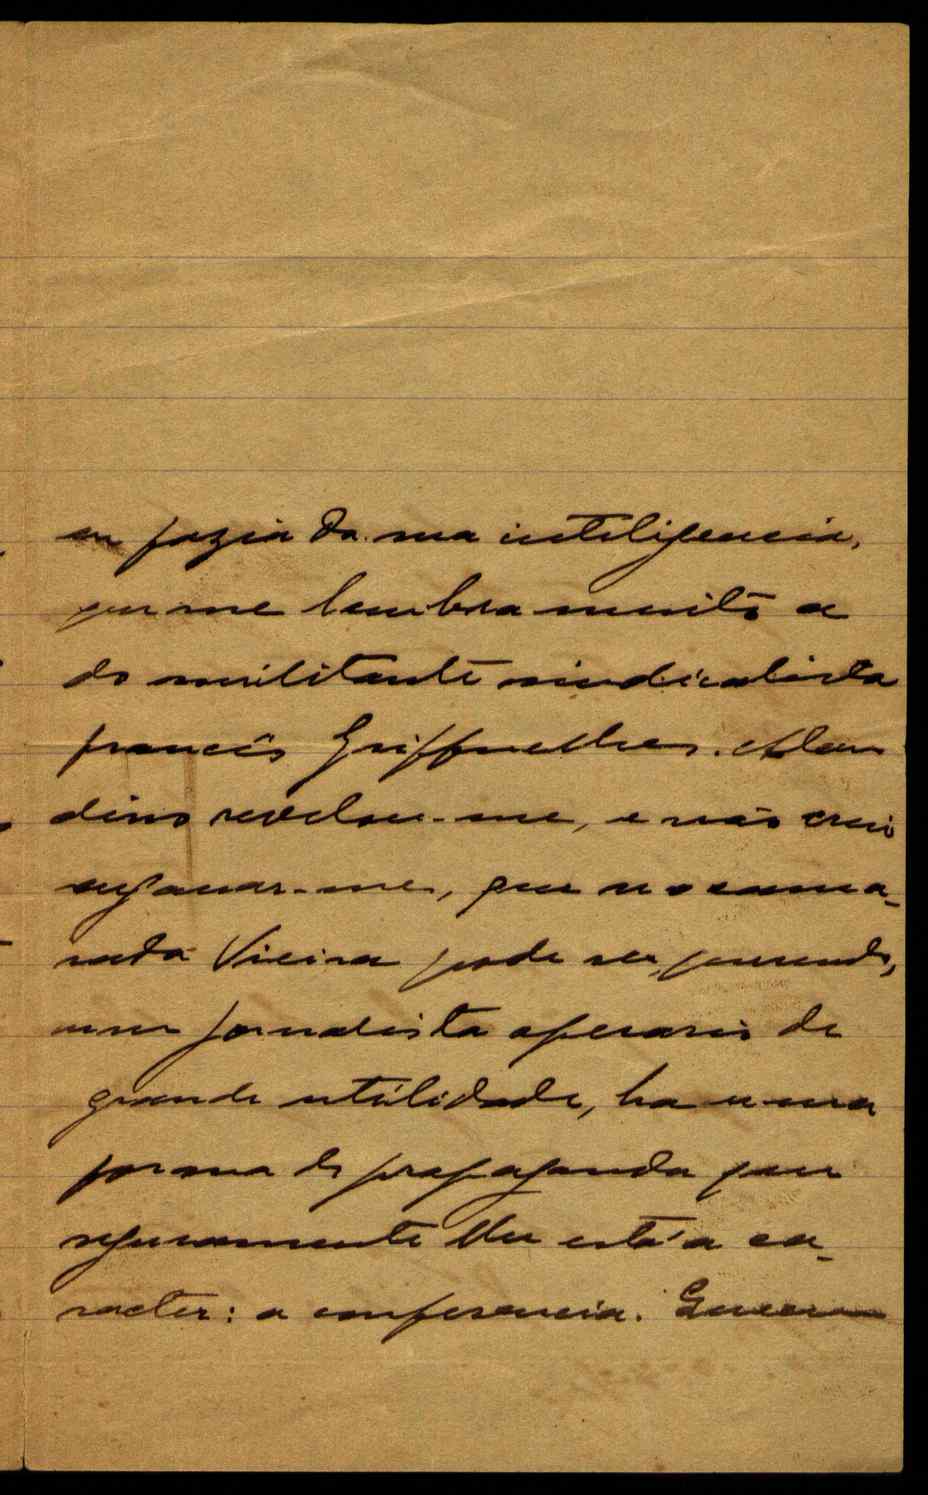 eu fazia da sua inteligencia,
que me lembra muito a
do militante sindicalista
francês Griffuelhes. Alem
disso revelou-me, e não creio
enganar-me, que se o cama-
rada Vieira pode ser, querendo,
um jornalista operario de
grande utilidade, ha uma
forma de propaganda que
seguramente lhe está a ca-
racter: a conferencia.